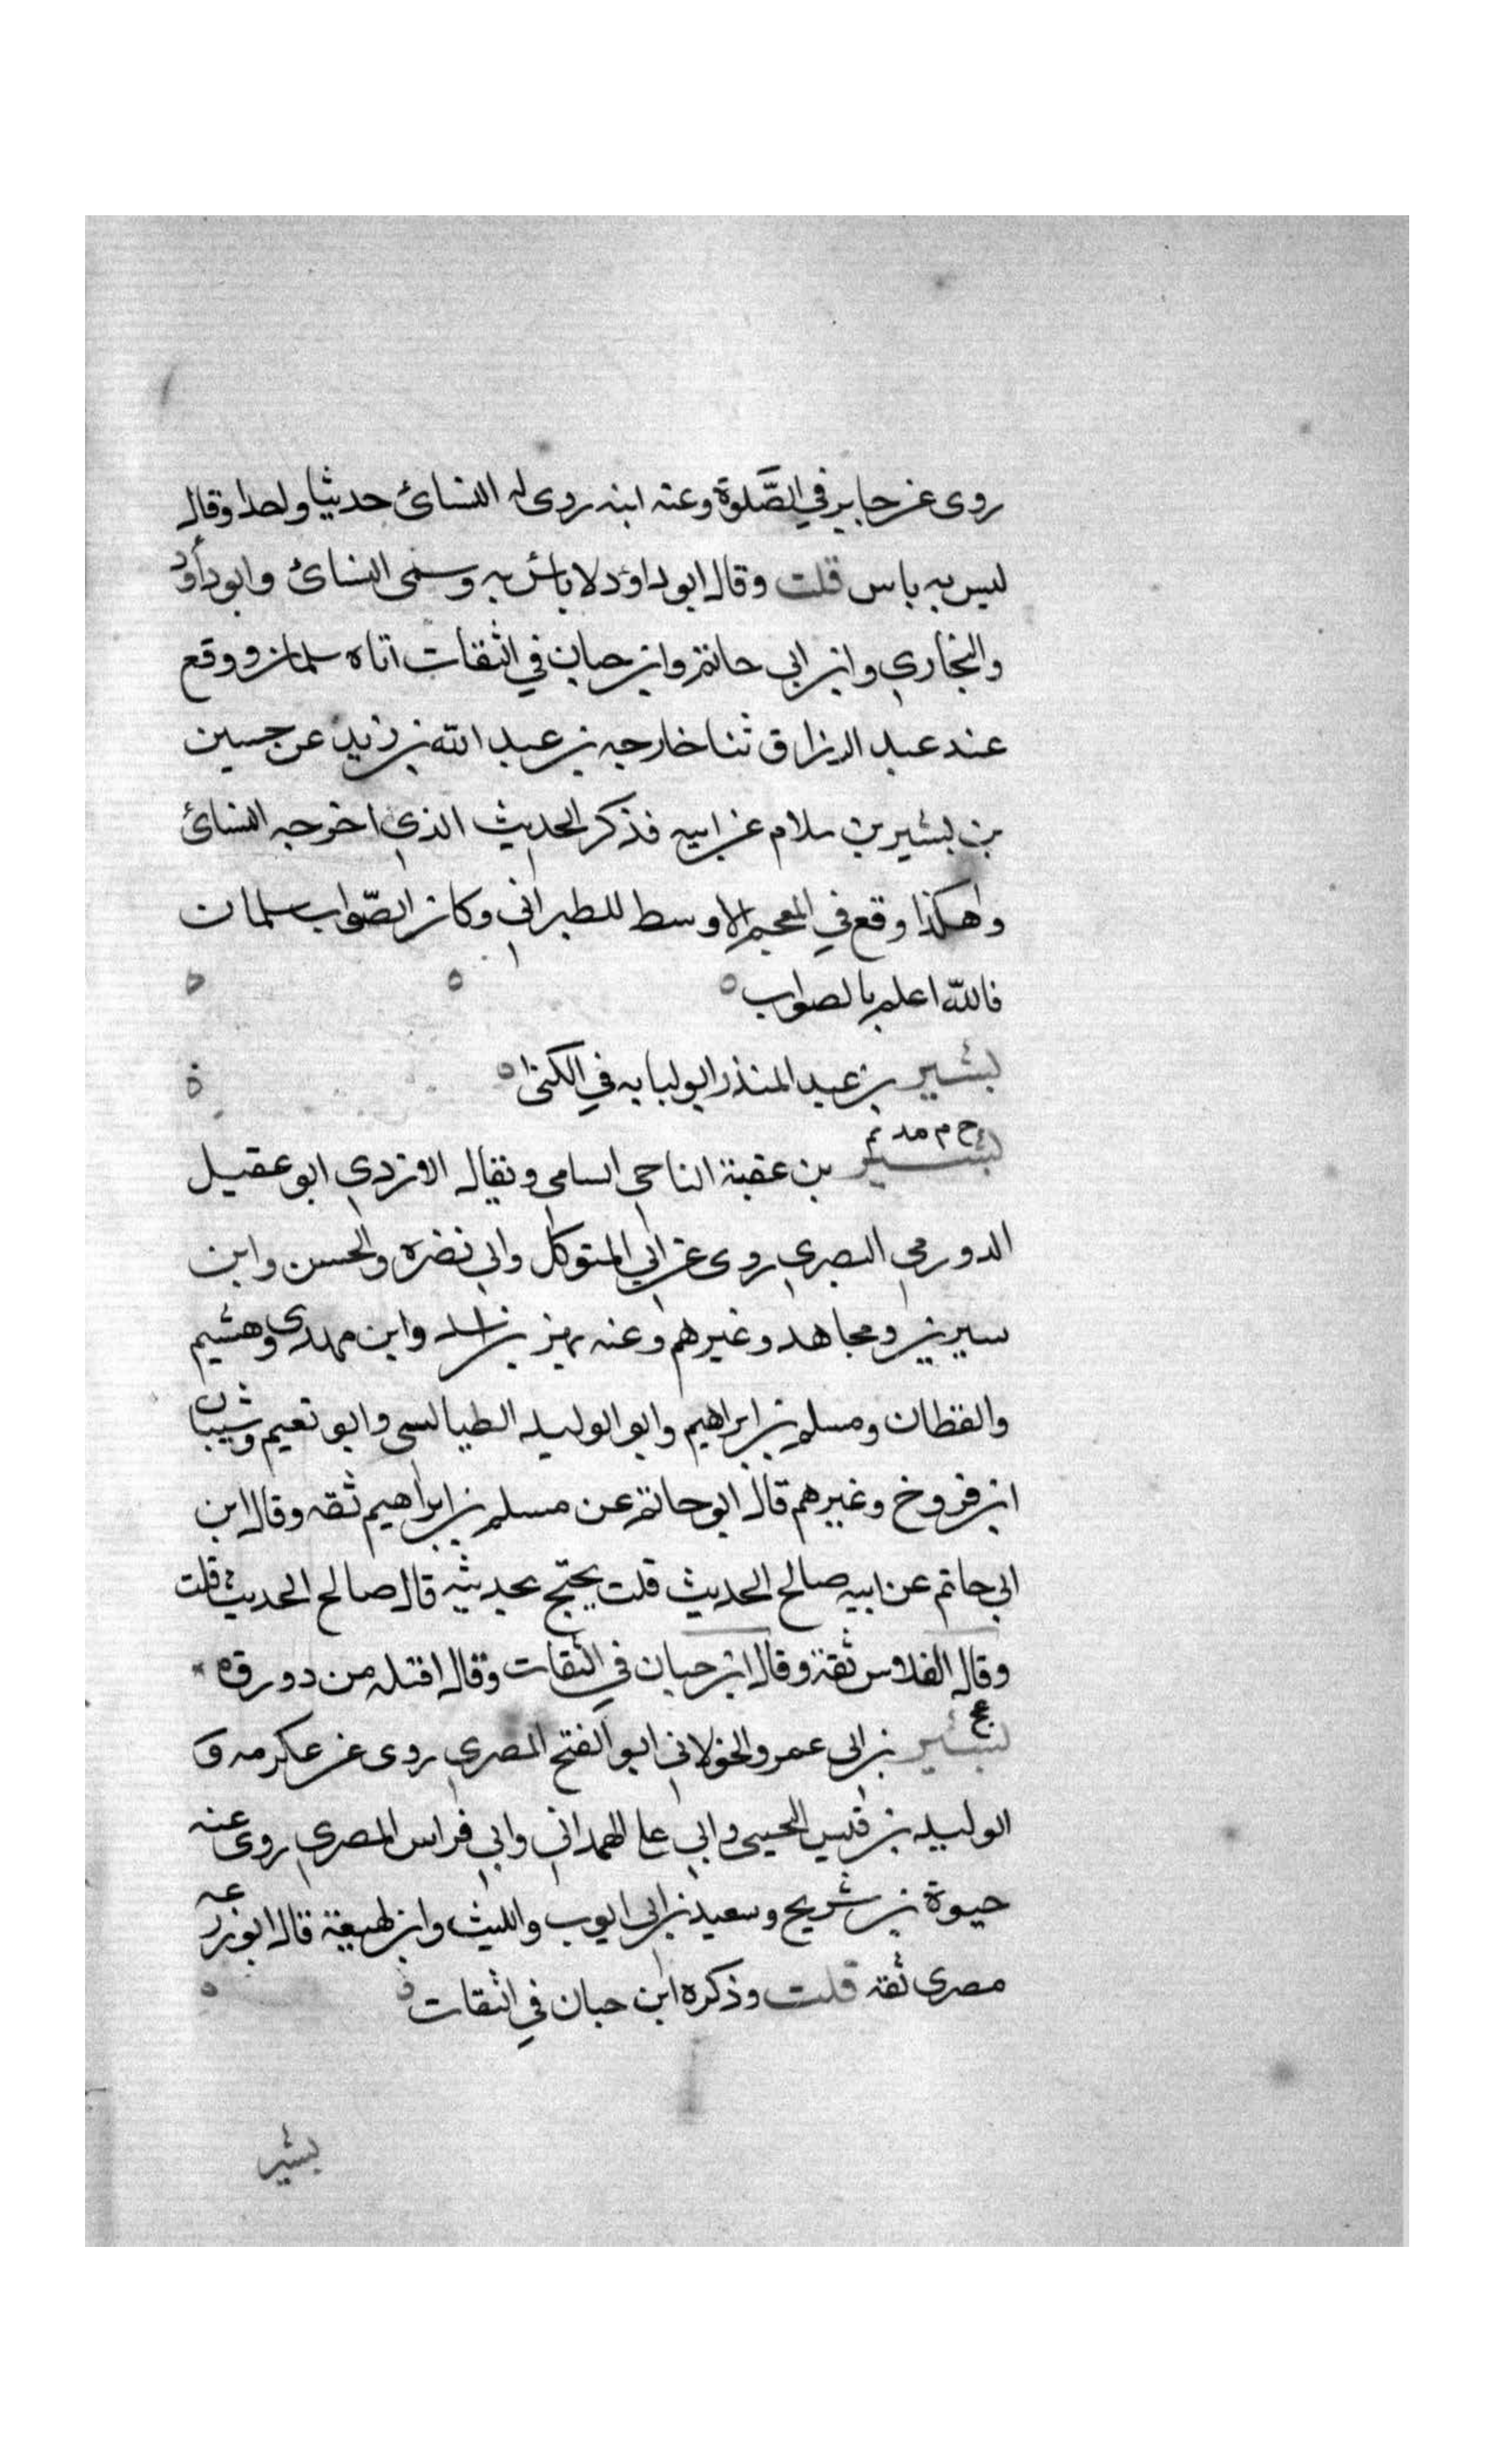 روى عن جابر في الصّلوة وعنه ابنه روى له النسائ حديثا واحدا وقال
ليس به باس قلت وقال ابو داود لا باس به وسمى النسائ وابو داود
والبخاري وابن ابي حاتم وابن حبان في الثقات اباه سلمان ووقع
عند عبد الرزاق ثنا خارجه بن عبد الله بن زيد عن حسين
بن بشير بن سلام عن ابيه فذكر الحديث الذي اخرجه النسائ
وهكذا وقع في المعجم الاوسط للطبراني وكان الصّواب سلمان
فالله اعلم بالصواب
بشير بن عبد المنذر ابو لبابه في الكنى
خ م مد تم
بشير بن عقبة الناجي السامي ويقال الازدي ابو عقيل
الدورقي البصري روى عن ابي المتوكل وابي نضره والحسن وابن
سيرين ومجاهد وغيرهم وعنه بهز بن اسد وابن مهدى وهشيم
والقطان ومسلم بن ابراهيم وابو الوليد الطيالسي وابو نعيم وشيبان
ابن فروخ وغيرهم قال ابو حاتم عن مسلم بن ابراهيم ثقه وقال ابن
ابي حاتم عن ابيه صالح الحديث قلت يحتج بحديثه قال صالح الحديث قلت
وقال الفلاس ثقة وقال ابن حبان في الثقات وقال اصله من دورق
عخ
بشير بن ابي عمرو الخولاني ابو الفتح المصري روى عن عكرمه و
الوليد بن قيس التجيبي وابي علي الهمداني وابي فراس المصري روى عنه
حيوة بن شريح وسعيد بن ابي ايوب والليث وابن لهيعة قال ابو زرعه
مصرى ثقه قلت وذكره ابن حبان في الثقات
بشير